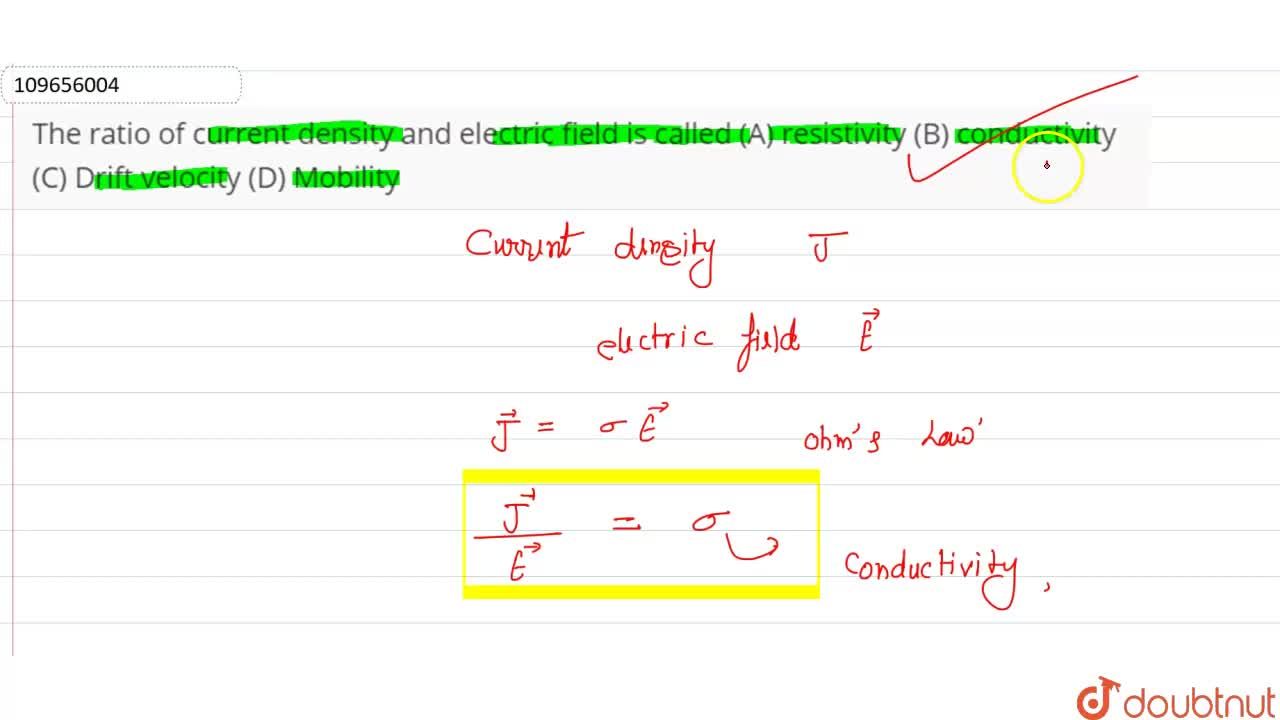 109656004
The ratio of current density and electric field is called (A) resistivity (B) conductivity
(C) Drift velocity (D) Mobility
Current density J
electric field E
J = σ E ohm's Law'
J
= σ
E
Conductivity,
doubtnut